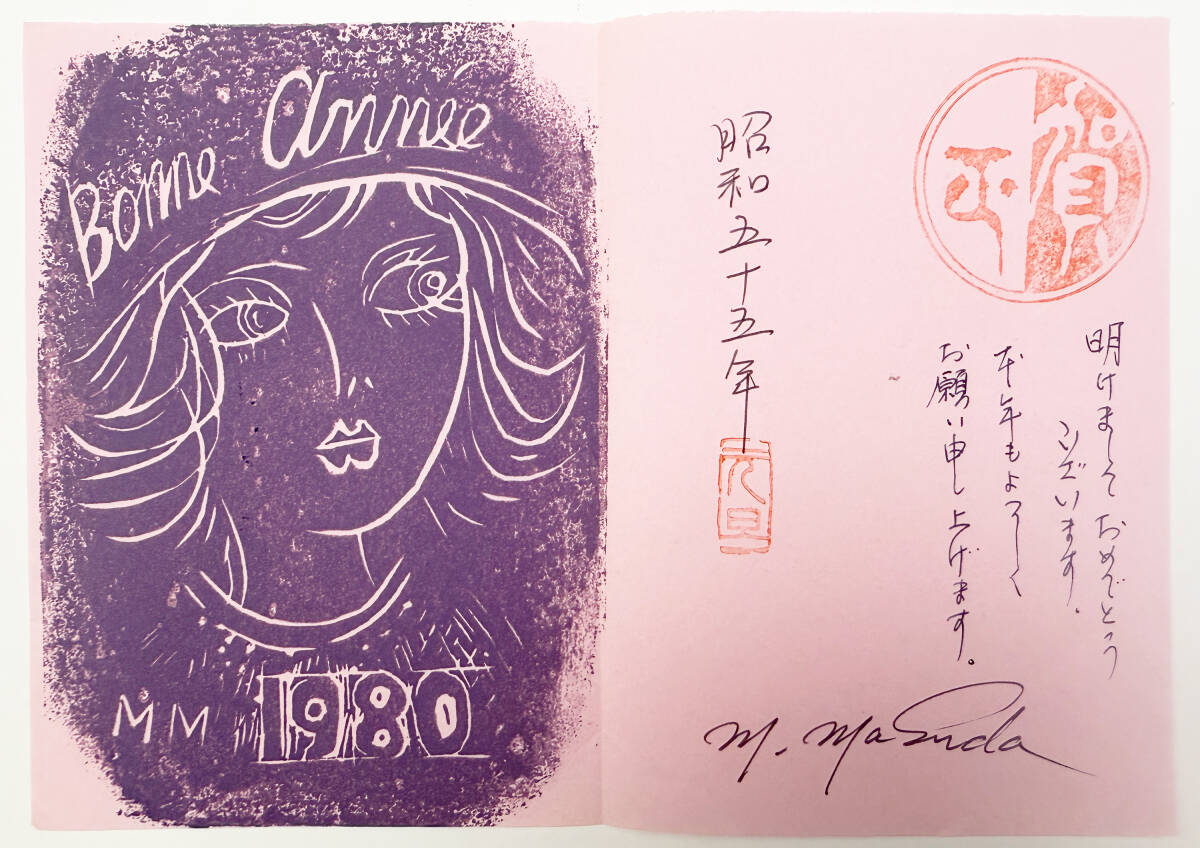 Bonne année
MM 1980
賀正
明けまして おめでとう
ございます.
本年もよろしく
お願い申し上げます。
昭和五十五年
元旦
M. Masuda